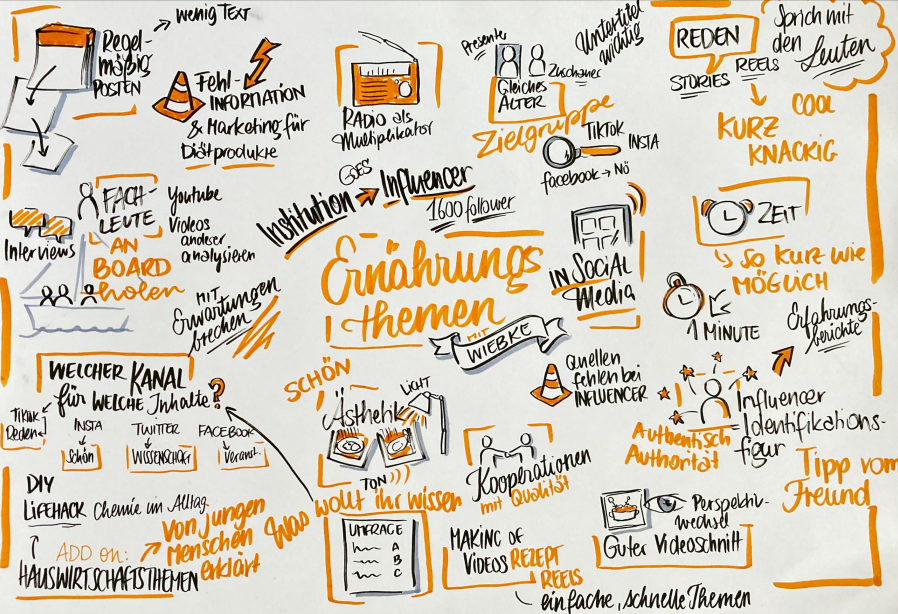 Regel-
mäßig
POSTEN
wenig TEXT
Fehl-
INFORMATION
& Marketing für
Diätprodukte
RADIO als
Multiplikator
Presenter
Zuschauer
Gleiches
ALTER
Untertitel
wichtig
Zielgruppe
TikTok
INSTA
facebook → Nö
REDEN
STORIES
REELS
Sprich mit
den
Leuten
KURZ
COOL
KNACKIG
FACH-
LEUTE
AN
BOARD
holen
Interviews
Youtube
Videos
analysieren
MIT
Erwartungen
brechen
Institution
GOES
Influencer
1600 follower
Ernährungs
themen
MIT
WIEBKE
IN SOCiAL
Media
ZEIT
so KURZ WiE
MÖGLICH
1 MINUTE
Erfahrungs-
berichte
WELCHER KANAL
für WELCHE Inhalte?
TikTok
Reden
INSTA
Schön
TWITTER
WISSENSCHAFT
FACEBOOK
Veranst.
SCHÖN
Ästhetik
LICHT
TON
Quellen
fehlen bei
INFLUENCER
Kooperationen
mit Qualität
Influencer
Identifikations-
figur
Authentisch
Authorität
Tipp vom
Freund
DIY
LIFEHACK Chemie im Alltag
ADD on:
HAUSWIRTSCHAFTSTHEMEN
Von jungen
Menschen
erklärt
Was wollt ihr wissen
UMFRAGE
A
B
C
MAKING OF
VIDEOS REZEPT
REELS
einfache, schnelle Themen
Perspektiv-
wechsel
Guter Videoschnitt